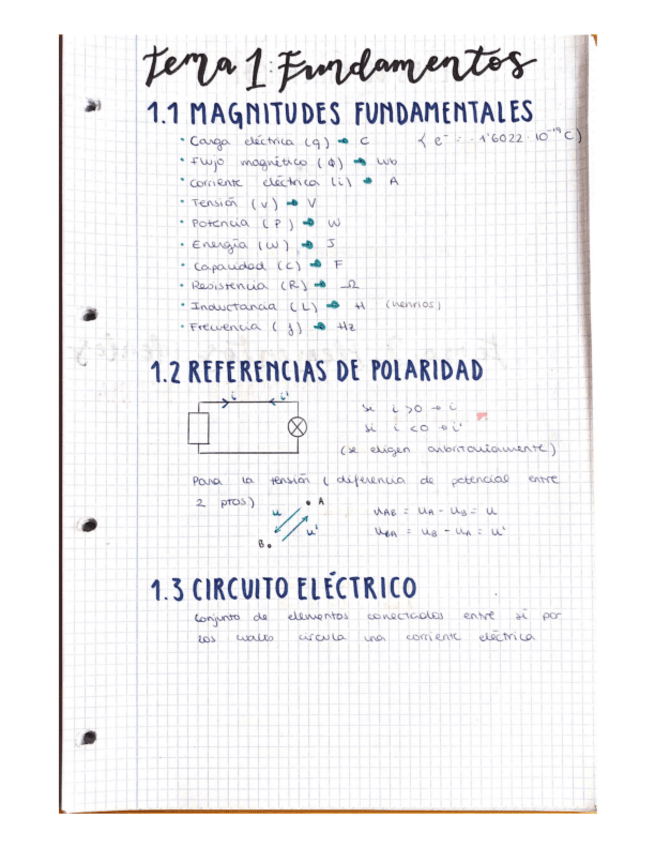 Tema 1: Fundamentos
1.1 MAGNITUDES FUNDAMENTALES
• Carga eléctrica (q) → C { e⁻ = -1'6022·10⁻¹⁹ C)
• Flujo magnético (ϕ) → Wb
• Corriente eléctrica (i) → A
• Tensión (V) → V
• Potencia (P) → W
• Energía (W) → J
• Capacidad (C) → F
• Resistencia (R) → Ω
• Inductancia (L) → H (henrios)
• Frecuencia (f) → Hz
1.2 REFERENCIAS DE POLARIDAD
i i'
si i > 0 → i
si i < 0 → i'
(se eligen arbitrariamente)
Para la tensión (diferencia de potencial entre
2 ptos.)
A
u u'
B
uAB = uA - uB = u
uBA = uB - uA = u'
1.3 CIRCUITO ELÉCTRICO
Conjunto de elementos conectados entre sí por
los cuales circula una corriente eléctrica